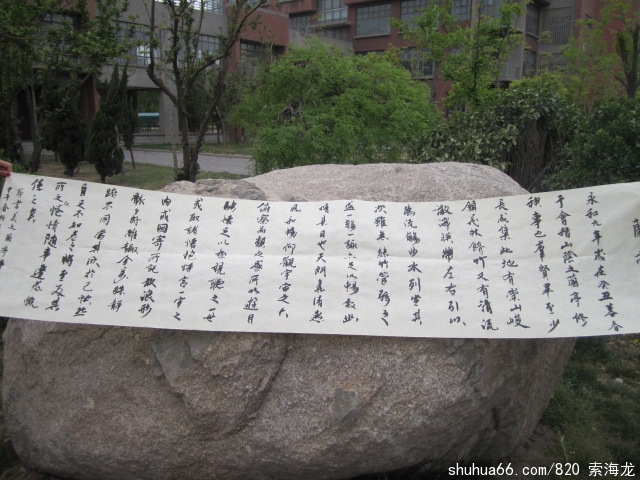 蘭亭
永和九年歲在癸丑暮春
于會稽山陰之蘭亭修
禊事也羣賢畢至少
長咸集此地有崇山峻
領茂林脩竹又有清流
激湍映帶左右引以
為流觴曲水列坐其
次雖無絲竹管弦之
盛一觴一詠亦足以暢敘幽
情是日也天朗氣清惠
風和暢仰觀宇宙之大
俯察品類之盛所以遊目
騁懷足以極視聽之
或取諸懷抱悟言一室之
內或因寄所託放浪形
骸之外雖趣舍萬殊靜
躁不同當其欣於
自足不知老之將至及其
所之既惓情隨事遷感慨
係之矣
shuhua66.com/820 索海龙